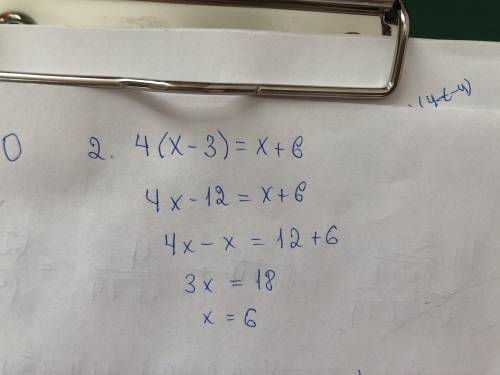 2. 4(x-3)=x+6
4x-12=x+6
4x-x=12+6
3x=18
x=6